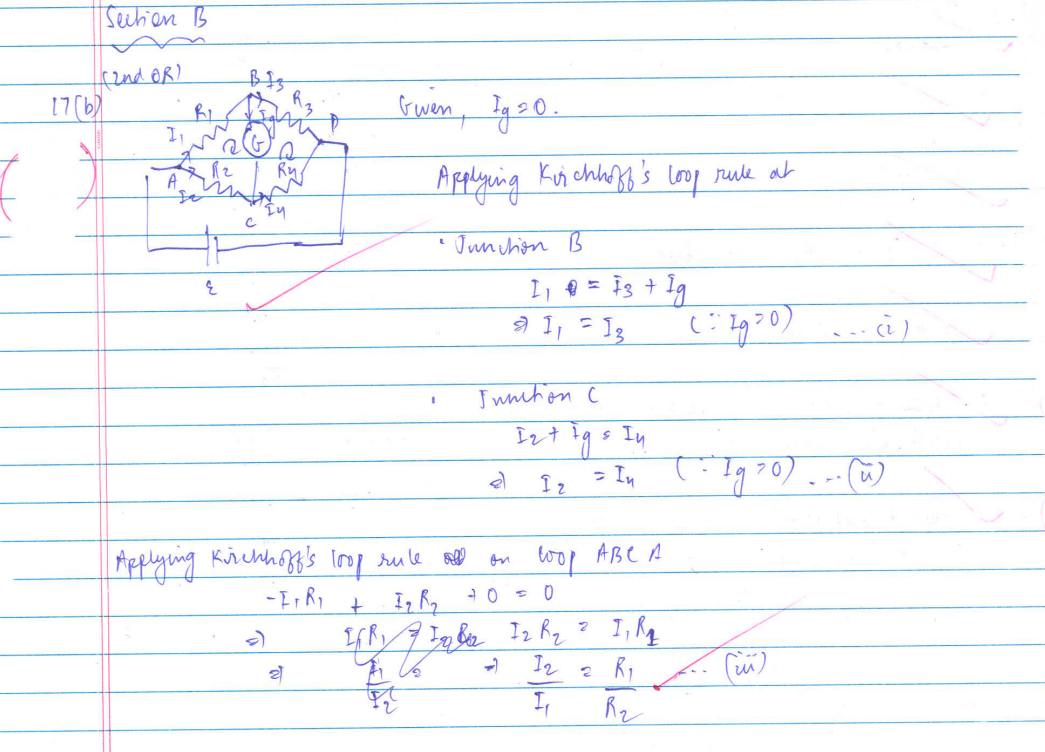 Section B
(2nd OR)
17(b)
B I3
R1 R3
I1 Ig D
G
A R2 R4
I2 I4
C
ε
Given, Ig = 0.
Applying Kirchhoff's loop rule at
· Junction B
I1 = I3 + Ig
⇒ I1 = I3 (∵ Ig = 0) ... (i)
· Junction C
I2 + Ig = I4
⇒ I2 = I4 (∵ Ig = 0) ... (ii)
Applying Kirchhoff's loop rule on loop ABCA
-I1R1 + I2R2 + 0 = 0
⇒ I2R2 = I1R1
⇒ I2/I1 = R1/R2 ... (iii)